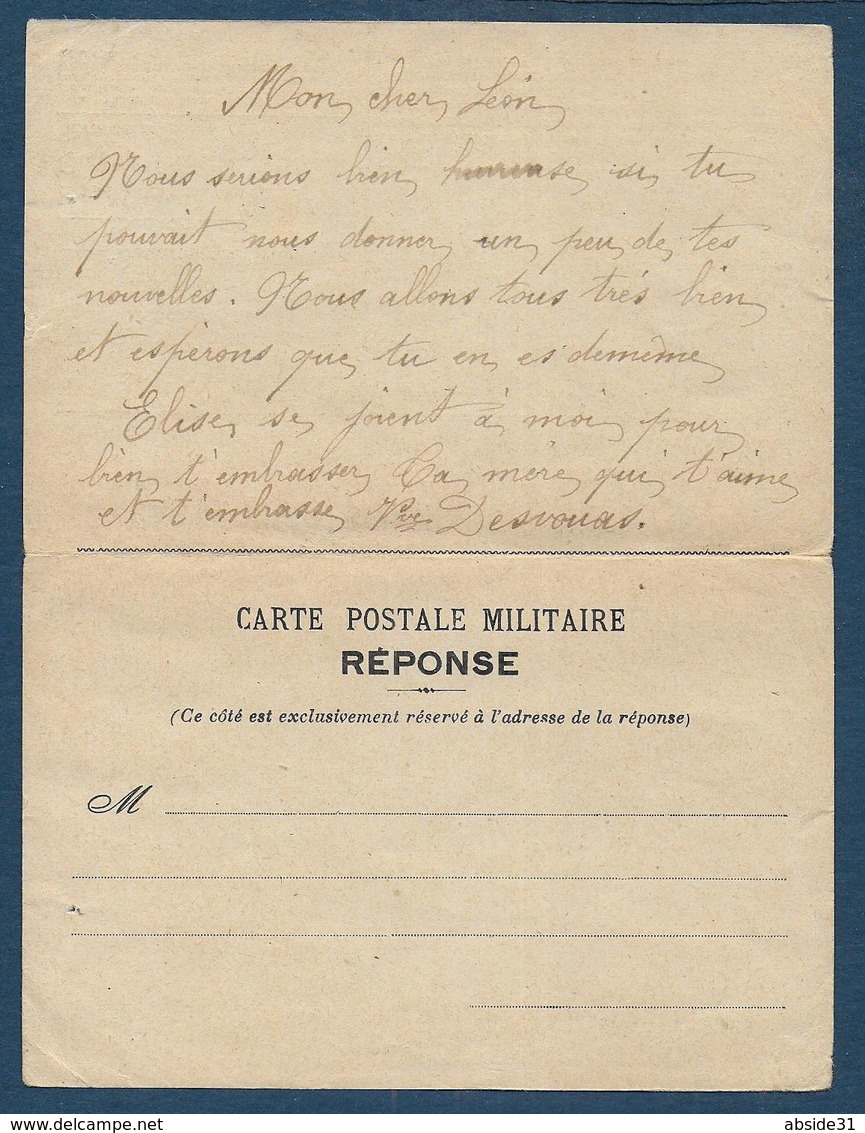 Mon cher Léon
Nous serions bien heureuse si tu
pouvait nous donner un peu de tes
nouvelles. Nous allons tous trés bien
et espèrons que tu en es demême
Elise se joient à moi pour
bien t'embrasser Ta mère qui t'aime
et t'embrasse Vve Desvouas.
CARTE POSTALE MILITAIRE
RÉPONSE
(Ce côté est exclusivement réservé à l'adresse de la réponse)
M
delcampe.net
abside31